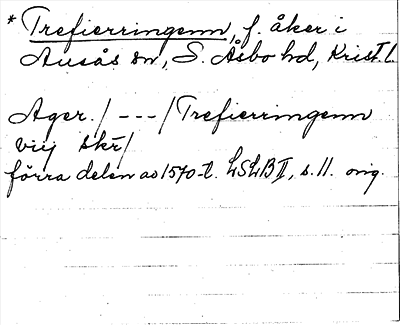 * Trefierringenn, f. åker i
Ausås sn, S. Åsbo hd, Krist. l.
Ager. / --- / Trefierringenn
viij skr /
förra delen av 1570-t. LSLB II, s. 11. orig.